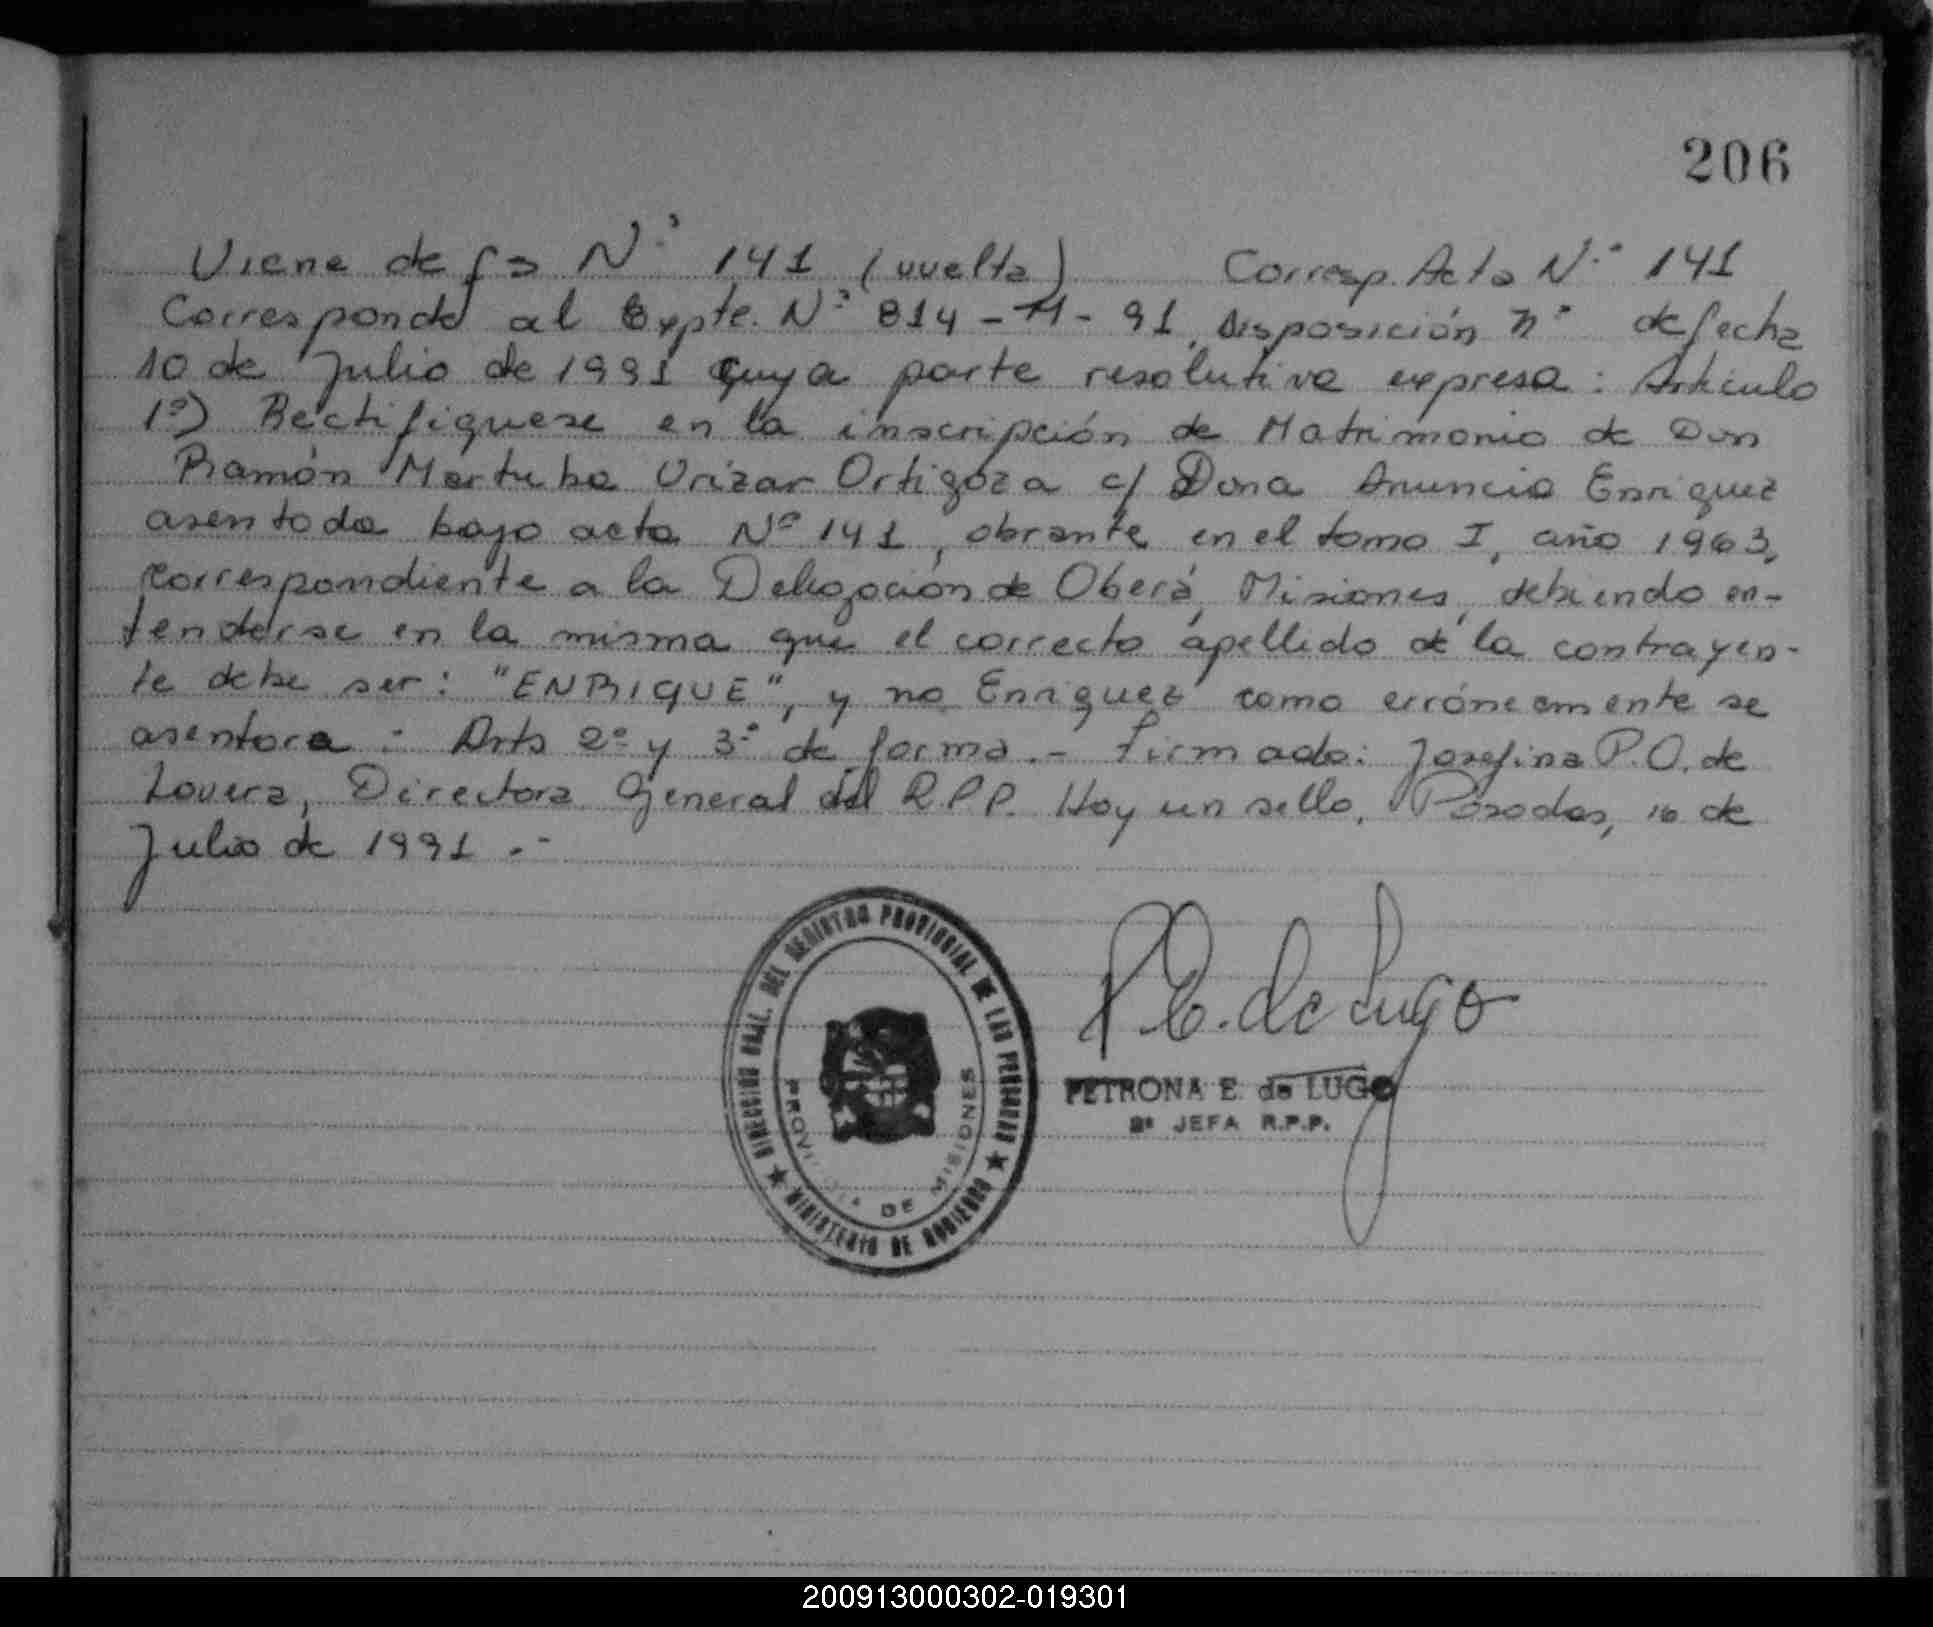 206
Viene de fs N° 141 (vuelta) Corresp. Acta N° 141
Corresponde al Expte. N° 814-M-91, Disposición n° de fecha
10 de Julio de 1991 cuya parte resolutiva expresa: Artículo
1°) Rectifiquese en la inscripción de Matrimonio de Don
Ramón Urizar Ortigoza c/ Dona Anuncia Enriquez
asentada bajo acta N° 141, obrante en el tomo I, año 1963,
correspondiente a la Delegación de Oberá, Misiones, debiendo en-
tenderse en la misma que el correcto apellido de la contrayen-
te debe ser: "ENRIQUE", y no Enriquez como erróneamente se
asentara: Arts 2° y 3° de forma.- Firmado: Josefina P.O. de
Lovera, Directora General del R.P.P. Hay un sello. Posadas, 16 de
Julio de 1991.-
DIRECCION GRAL. DEL REGISTRO PROVINCIAL DE LAS PERSONAS
PROVINCIA DE MISIONES
★ MINISTERIO DE GOBIERNO ★
P.E. de Lugo
PETRONA E. de LUGO
2ª JEFA R.P.P.
200913000302-019301